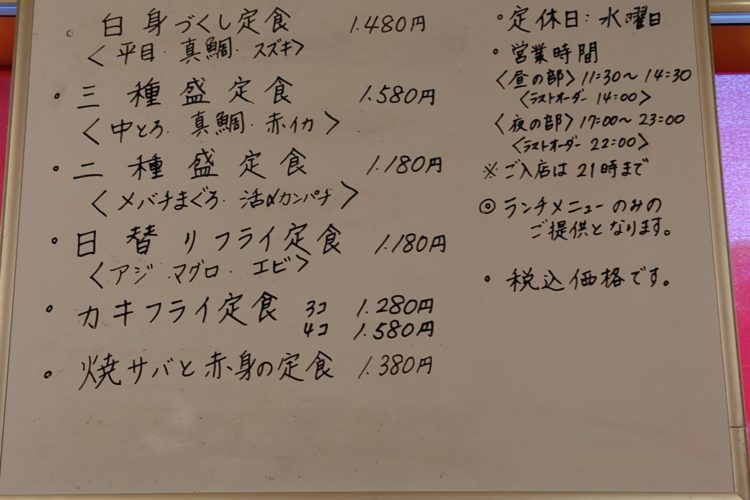 。白身づくし定食 1.480円
〈平目. 真鯛. スズキ〉
・三種盛定食 1.580円
〈中とろ. 真鯛. 赤イカ〉
・二種盛定食 1.180円
〈メバチまぐろ. 活〆カンパチ〉
・日替りフライ定食 1.180円
〈アジ. マグロ. エビ〉
・カキフライ定食 3コ 1.280円
4コ 1.580円
・焼サバと赤身の定食 1.380円
・定休日: 水曜日
・営業時間
〈昼の部〉11:30〜14:30
〈ラストオーダー 14:00〉
〈夜の部〉17:00〜23:00
〈ラストオーダー 22:00〉
※ご入店は21時まで
◎ランチメニューのみの
ご提供となります。
・税込価格です。